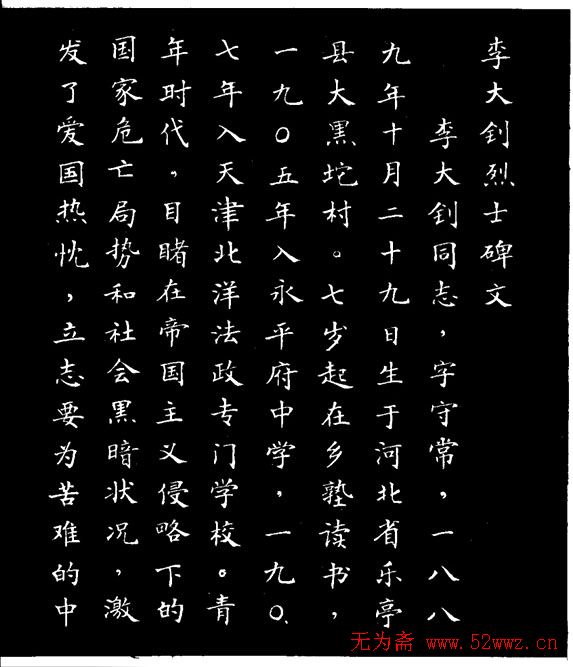 李大钊烈士碑文
李大钊同志，字守常，一八八
九年十月二十九日生于河北省乐亭
县大黑坨村。七岁起在乡塾读书，
一九〇五年入永平府中学，一九〇
七年入天津北洋法政专门学校。青
年时代，目睹在帝国主义侵略下的
国家危亡局势和社会黑暗状况，激
发了爱国热忱，立志要为苦难的中
无为斋 www.52wwz.cn